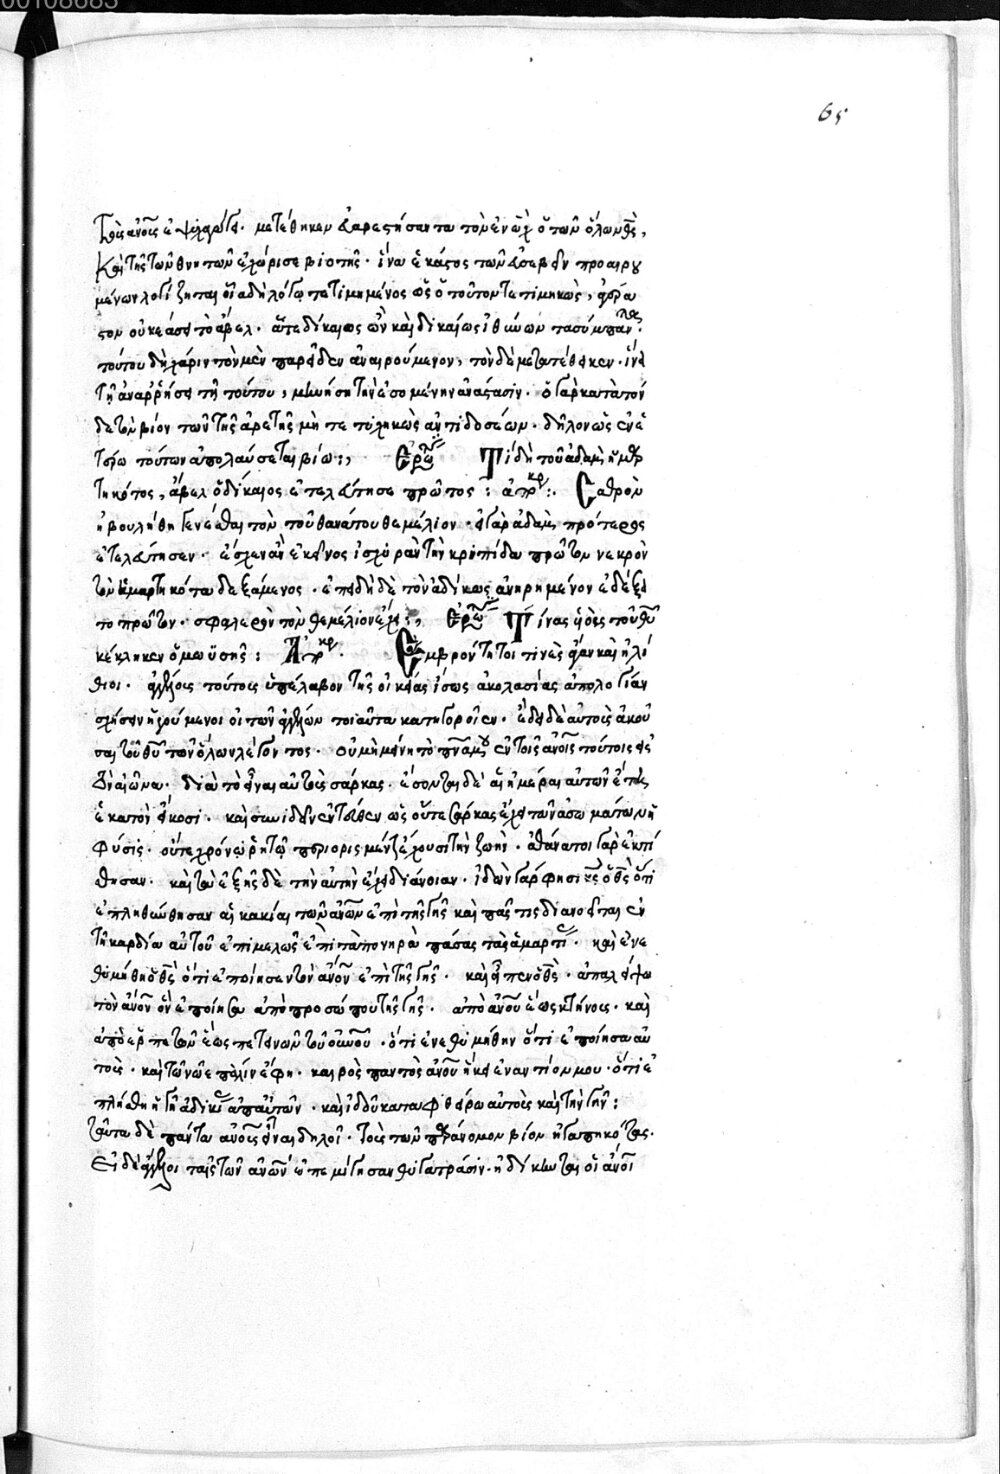 65
τοῖς ἀνοις ἐψηφίσατο. μετέθηκεν εὐαρεστήσαντα τὸν ἐνὼχ ὁ τῶν ὅλων θς,
καὶ τῆς τῶν θνητῶν ἐχώρισε βιοτῆς. ἵνα ἕκαστος τῶν εὐσεβεῖν προαιρου
μένων λογίζηται
τούτου δὴ χάριν τὸν μὲν παρεῖδεν ἀναιρούμενον, τὸν δὲ μετατέθεικεν. ἵνα
τῇ ἀναρρήσει τῇ τούτου, μηνύσῃ τὴν ἐσομένην ἀνάστασιν. ὁ γὰρ κατὰ τὸν
δε τὸν βίον τῶν τῆς ἀρετῆς μὴ τετυχηκὼς ἀντιδόσεων. δῆλον ὡς ἐν ἑ
τέρω τούτων ἀπολαύσεται βίω:, Ἐρω Τί δὴ τοῦ ἀδαμ ἡμαρ
τηκότος, ἄβελ ὁ δίκαιος ἐτελεύτησε πρῶτος: ἀποκρ:. Σαθρὸν
ἠβουλήθη γενέσθαι τὸν τοῦ θανάτου θεμέλιον. εἰ γὰρ ἀδαμ πρότερος
ἐτελεύτησεν. ἔσχεν ἂν ἐκεῖνος ἰσχυρὰν τὴν κρηπίδα πρῶτον νεκρὸν
τὸν ἡμαρτηκότα δεξάμενος. ἐπειδὴ δὲ τὸν ἀδίκως ἀνηρημένον ἐδέξα
το πρῶτον. σφαλερὸν τὸν θεμέλιον ἔχει:, Ἐρω Τίνας υἱοὺς τοῦ θυ
κέκληκεν ὁ μωϋσῆς: Ἀποκρ. Ἐμβρόντητοί τινες ἄγαν καὶ ἠλί
θιοι. ἀγγέλους τούτους ὑπέλαβον τῆς οἰκείας ἴσως ἀκολασίας ἀπολογίαν
σχήσειν ἡγούμενοι εἰ τῶν ἀγγέλων τοιαῦτα κατηγοροῖεν. ἔδει δὲ αὐτοὺς ἀκοῦ
σαι τοῦ θυ τῶν ὅλων λέγοντος. οὐ μὴ μείνη τὸ πνα μου ἐν τοῖς ἀνοις τούτοις εἰς
τὸν αἰῶνα. διὰ τὸ εἶναι αὐτοὺς σάρκας. ἔσονται δὲ αἱ ἡμέραι αὐτῶν ἔτη
ἑκατὸν εἴκοσι. καὶ συνιδεῖν ἐντεῦθεν ὡς οὔτε σάρκας ἔχει τῶν ἀσωμάτων ἡ
φύσις. οὔτε χρόνω ῥητῷ περιορισμένην ἔχουσι τὴν ζωήν. ἀθάνατοι γὰρ ἐκτί
σθησαν. καὶ τὰ ἑξῆς δὲ τὴν αὐτὴν ἔχει διάνοιαν. ἰδὼν γάρ φησι κς ὁ θς ὅτι
ἐπληθύνθησαν αἱ κακίαι τῶν ἀνων ἐπὶ τῆς γῆς καὶ πᾶς τις διανοεῖται ἐν
τῇ καρδία αὐτοῦ ἐπιμελῶς ἐπὶ τὰ πονηρὰ πάσας τὰς ἡμέρας. καὶ ἐνε
θυμήθη ὁ θς ὅτι ἐποίησεν τὸν ἀνον ἐπὶ τῆς γῆς. καὶ εἶπεν ὁ θς. ἀπαλείψω
τὸν ἀνον ὃν ἐποίησα ἀπὸ προσώπου τῆς γῆς. ἀπὸ ἀνου ἕως κτήνους. καὶ
ἀπὸ ἑρπετῶν ἕως πετεινῶν τοῦ οὐνου. ὅτι ἐνεθυμήθην ὅτι ἐποίησα αὐ
τούς. καὶ τῶ νῶε πάλιν ἔφη. καιρὸς παντὸς ἀνου ἥκει ἐναντίον μου. ὅτι ἐ
πλήσθη ἡ γῆ ἀδικίας ἀπ αὐτῶν. καὶ ἰδοὺ καταφθείρω αὐτοὺς καὶ τὴν γῆν:
ταῦτα δὲ πάντα ἀνους εἶναι δηλοῖ. τοὺς τὸν παράνομον βίον ἠγαπηκότας.
εἰ δὲ ἄγγελοι ταῖς τῶν ἀνων ἐπεμίγησαν θυγατράσιν. ἠδίκηνται οἱ ἀνοι